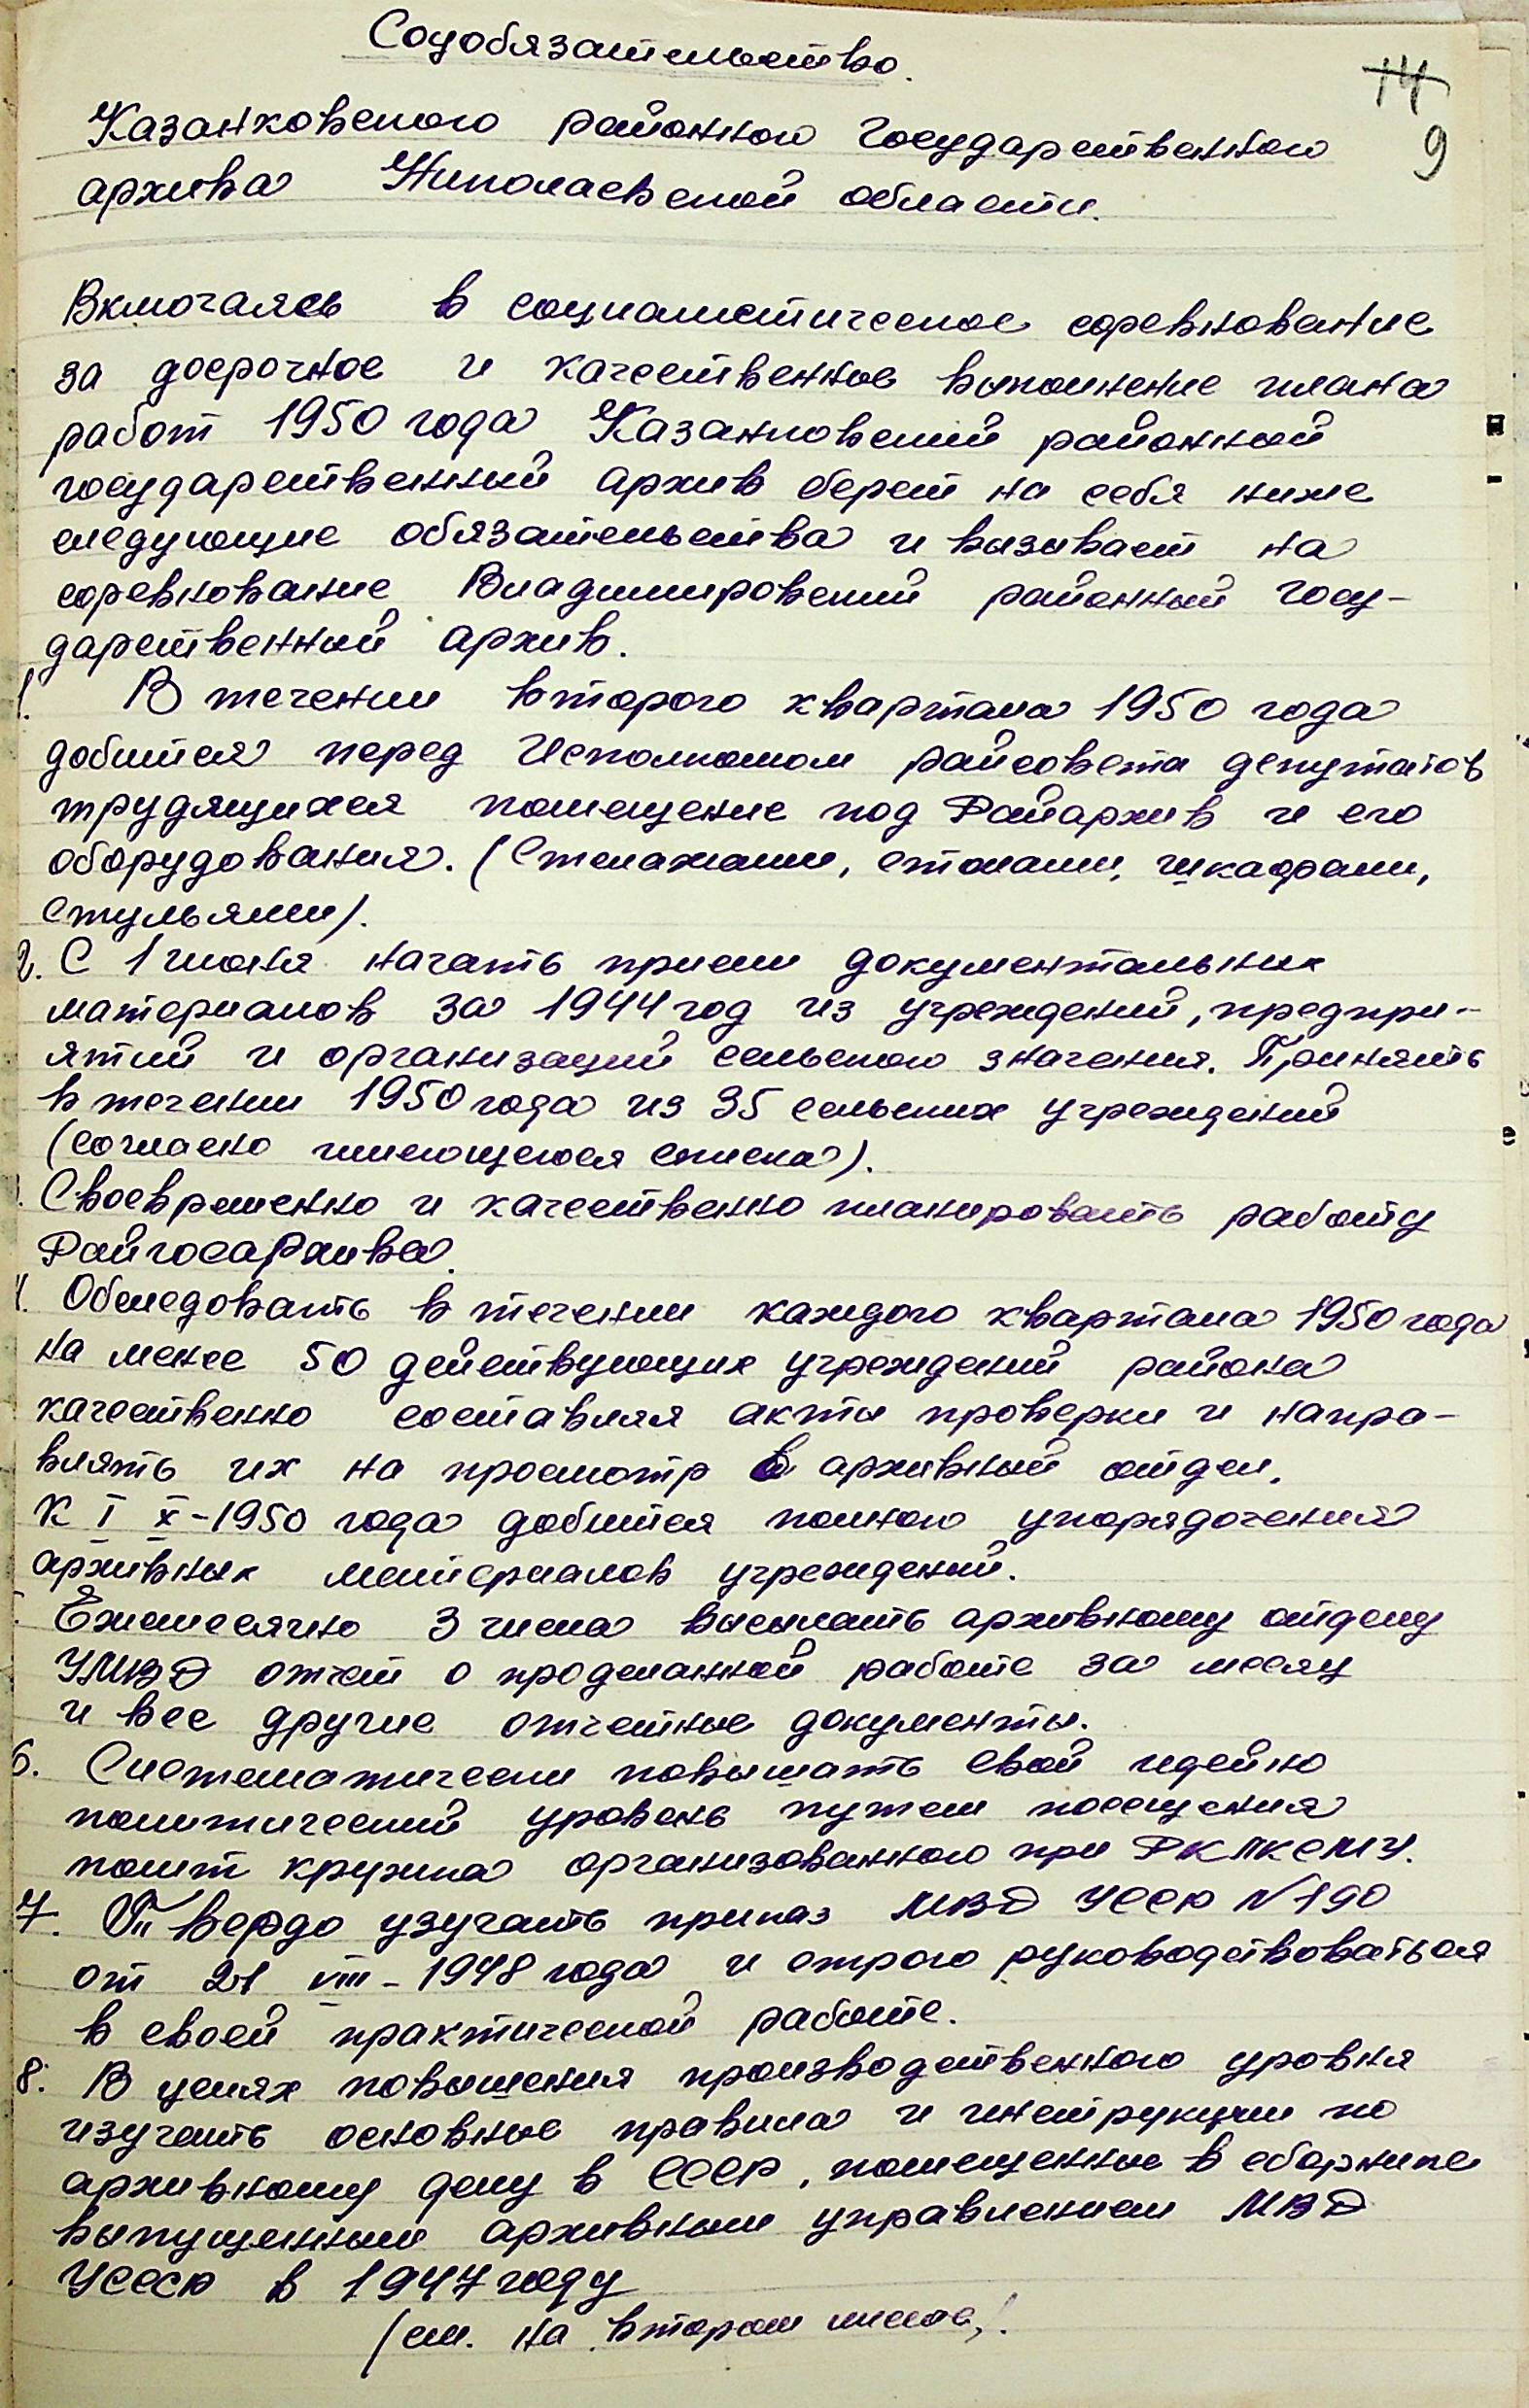 Соцобязательство.
14
9
Казанковского районного государственного
архива Николаевской области.
Включаясь в социалистическое соревнование
за досрочное и качественное выполнение плана
работ 1950 года Казанковский районный
государственный архив берет на себя ниже
следующие обязательства и вызывает на
соревнование Владимировский районный госу-
дарственный архив.
1. В течении второго квартала 1950 года
добится перед Исполкомом райсовета депутатов
трудящихся помещение под Райархив и его
оборудования. (Стелажами, столами, шкафами,
стульями).
2. С 1 июня начать прием документальных
материалов за 1944 год из учреждений, предпри-
ятий и организаций сельского значения. Принять
в течении 1950 года из 35 сельских учреждений
(согласно имеющегося списка).
Своевременно и качественно планировать работу
Райгосархива.
4. Обследовать в течении каждого квартала 1950 года
на менее 50 действующих учреждений района
качественно составляя акты проверки и напра-
влять их на просмотр в архивный отдел.
К I X-1950 года добится полного упорядочения
архивных материалов учреждений.
Ежемесячно 3 числа высылать архивному отделу
УМВД отчет о проделанной работе за месяц
и все другие отчетные документы.
6. Систематически повышать свой идейно
политический уровень путем посещения
полит кружка организованного при РК ЛКСМУ.
7. Твердо изучать приказ МВД УССР №190
от 21 VIII-1948 года и строго руководствоваться
в своей практической работе.
8. В целях повышения производственного уровня
изучать основные правила и инструкции по
архивному делу в СССР, помещенные в сборнике
выпущенный архивным управлением МВД
УССР в 1947 году
(см. на втором листе).